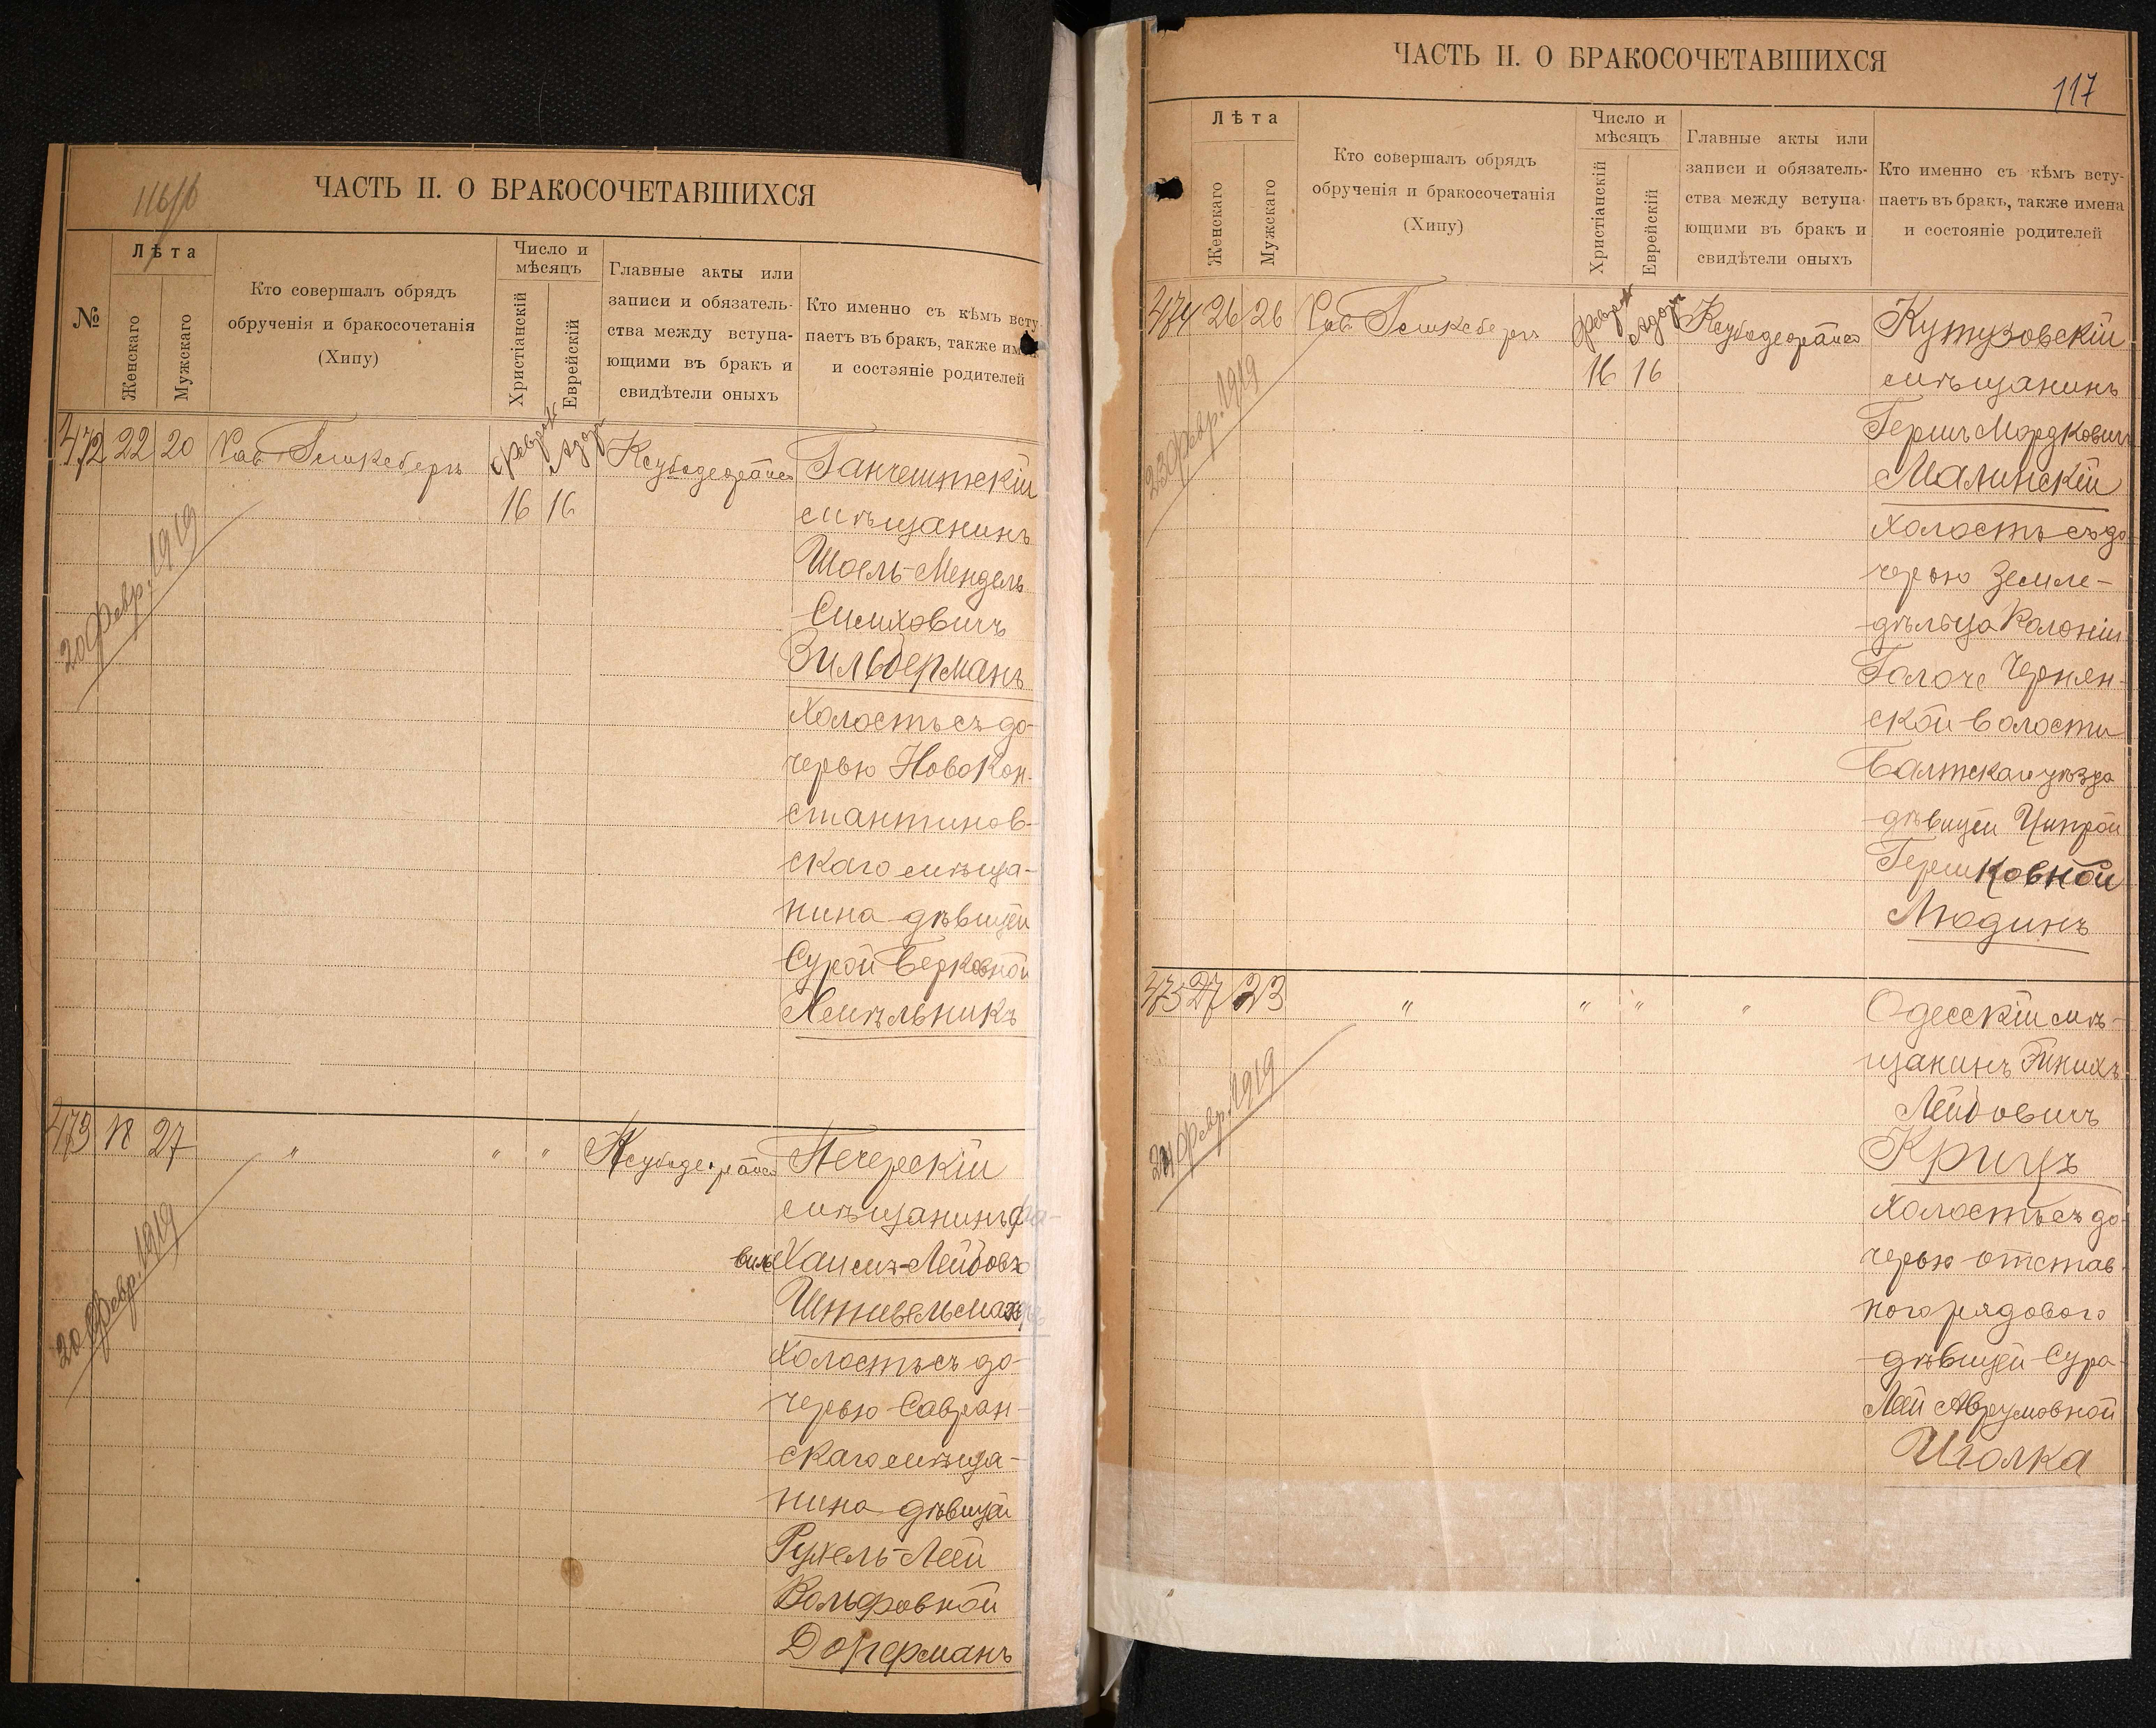 116/б
ЧАСТЬ II. О БРАКОСОЧЕТАВШИХСЯ
№
Лѣта
Женскаго
Мужскаго
Кто совершалъ обрядъ
обрученія и бракосочетанія
(Хипу)
Число и
мѣсяцъ
Христіанскій
Еврейскій
Главные акты или
записи и обязатель-
ства между вступа-
ющими въ бракъ и
свидѣтели оныхъ
Кто именно съ кѣмъ всту
паетъ въ бракъ, также им
и состояніе родителей
472 22 20 Рав.
Февраля
Адоръ
16 16
20 Февр. 1919
Ганчештскій
мѣщанинъ
Шоель-Мендель
Симховичъ
Зильберманъ
холостъ съ до-
черью Новокон-
стантинов-
скаго мѣща-
нина дѣвицей
Сурой Берковной
Хмѣльникъ
473 18 27 " " "
20 Февр. 1919
Печерскій
мѣщанинъ Да-
видъ Хаимъ-Лейбовъ
холостъ съ до-
черью Савран-
скаго мѣща-
нина дѣвицей
Рухель-Леей
Вольфовной
Дорферманъ
117
ЧАСТЬ II. О БРАКОСОЧЕТАВШИХСЯ
Лѣта
Женскаго
Мужскаго
Кто совершалъ обрядъ
обрученія и бракосочетанія
(Хипу)
Число и
мѣсяцъ
Христіанскій
Еврейскій
Главные акты или
записи и обязатель-
ства между вступа-
ющими въ бракъ и
свидѣтели оныхъ
Кто именно съ кѣмъ всту-
паетъ въ бракъ, также имена
и состояніе родителей
474 26 26 Рав.
Февраля
Адоръ
16 16
23 Февр. 1919
Кутузовскій
мѣщанинъ
Гершъ Мордковичъ
Малинскій
холостъ съ до
черью земле-
дѣльца колоніи
Голоче Чернян-
ской волости
Балтскаго уѣзда
дѣвицей Ципрой
Гершковной
Людинъ
475 27 23 " " " "
24 Февр. 1919
Одесскій мѣ-
щанинъ Пинхъ
Лейбовичъ
Крицъ
холостъ съ до-
черью отстав-
ного рядового
дѣвицей Сура-
Леей Аврумовной
Иголка